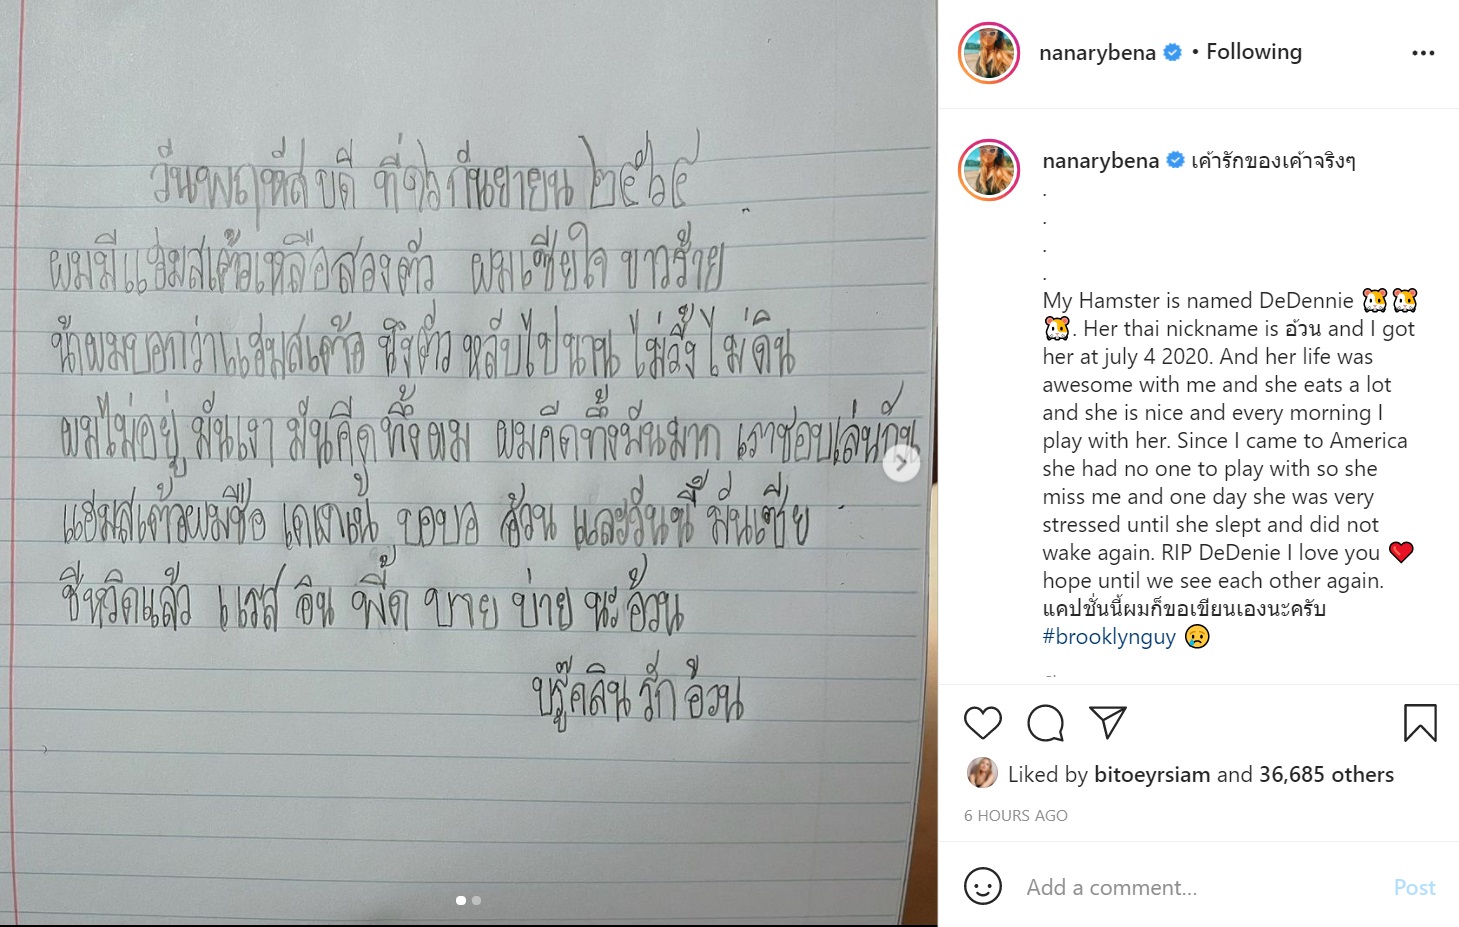 วันพฤหัสบดี ที่๑๖ กันยายน ๒๕๖๔
ผมมีแฮมสเต้อเหลือสองตัว ผมเซียใจ ขาวร้าย
น้าผมบอกว่าแฮมสเต้อ นึงตัว หลับไปนาน ไม่วิ้ง ไม่ดิน
ผมไม่อยู่ มันเงา มันคิดทึ้งผม ผมคิดทึ้งมันมาก เราชอบเล่นกัน
แฮมสเต้อผมชือ อ้วน และวันนี้ มันเซีย
ชีหวิดแล้ว แรส อิน พี้ด บาย บ่าย นะอ้วน
บรู๊คลิน รัก อ้วน
nanarybena • Following
nanarybena เค้ารักของเค้าจริงๆ
.
.
.
.
My Hamster is named DeDennie 🐹🐹
🐹. Her thai nickname is อ้วน and I got
her at july 4 2020. And her life was
awesome with me and she eats a lot
and she is nice and every morning I
play with her. Since I came to America
she had no one to play with so she
miss me and one day she was very
stressed until she slept and did not
wake again. RIP DeDenie I love you ❤️
hope until we see each other again.
แคปชั่นนี้ผมก็ขอเขียนเองนะครับ
#brooklynguy 😢
Liked by bitoeyrsiam and 36,685 others
6 HOURS AGO
Add a comment...
Post